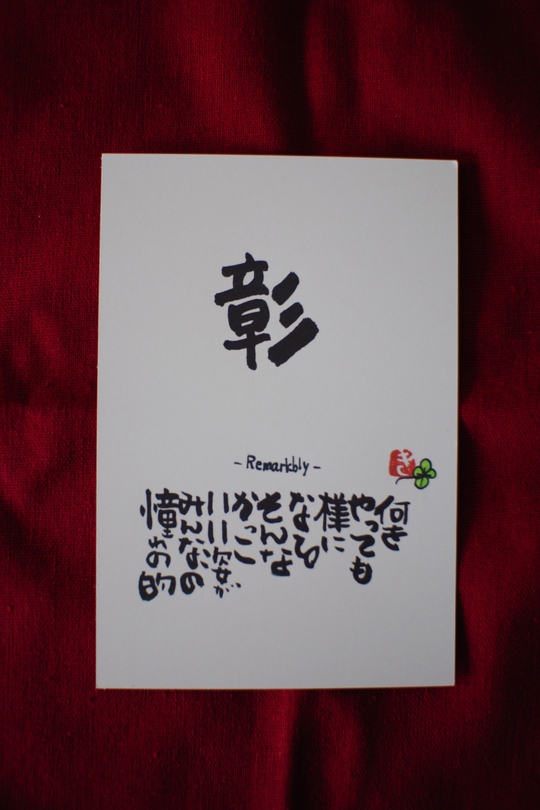 彰
- Remarkbly -
何を
やっても
様に
なる
そんな
かっこ
いい姿が
みんなの
憧れの的